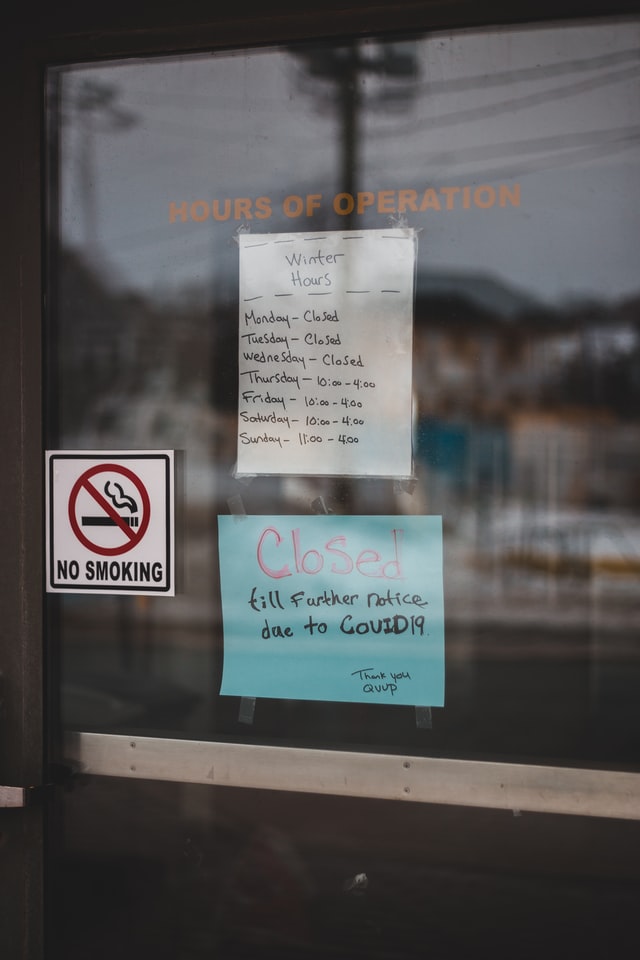 HOURS OF OPERATION
Winter
Hours
Monday - Closed
Tuesday - Closed
Wednesday - Closed
Thursday - 10:00 - 4:00
Friday - 10:00 - 4:00
Saturday - 10:00 - 4:00
Sunday - 11:00 - 4:00
NO SMOKING
Closed
till Further notice
due to COVID19.
Thank you
QVUP